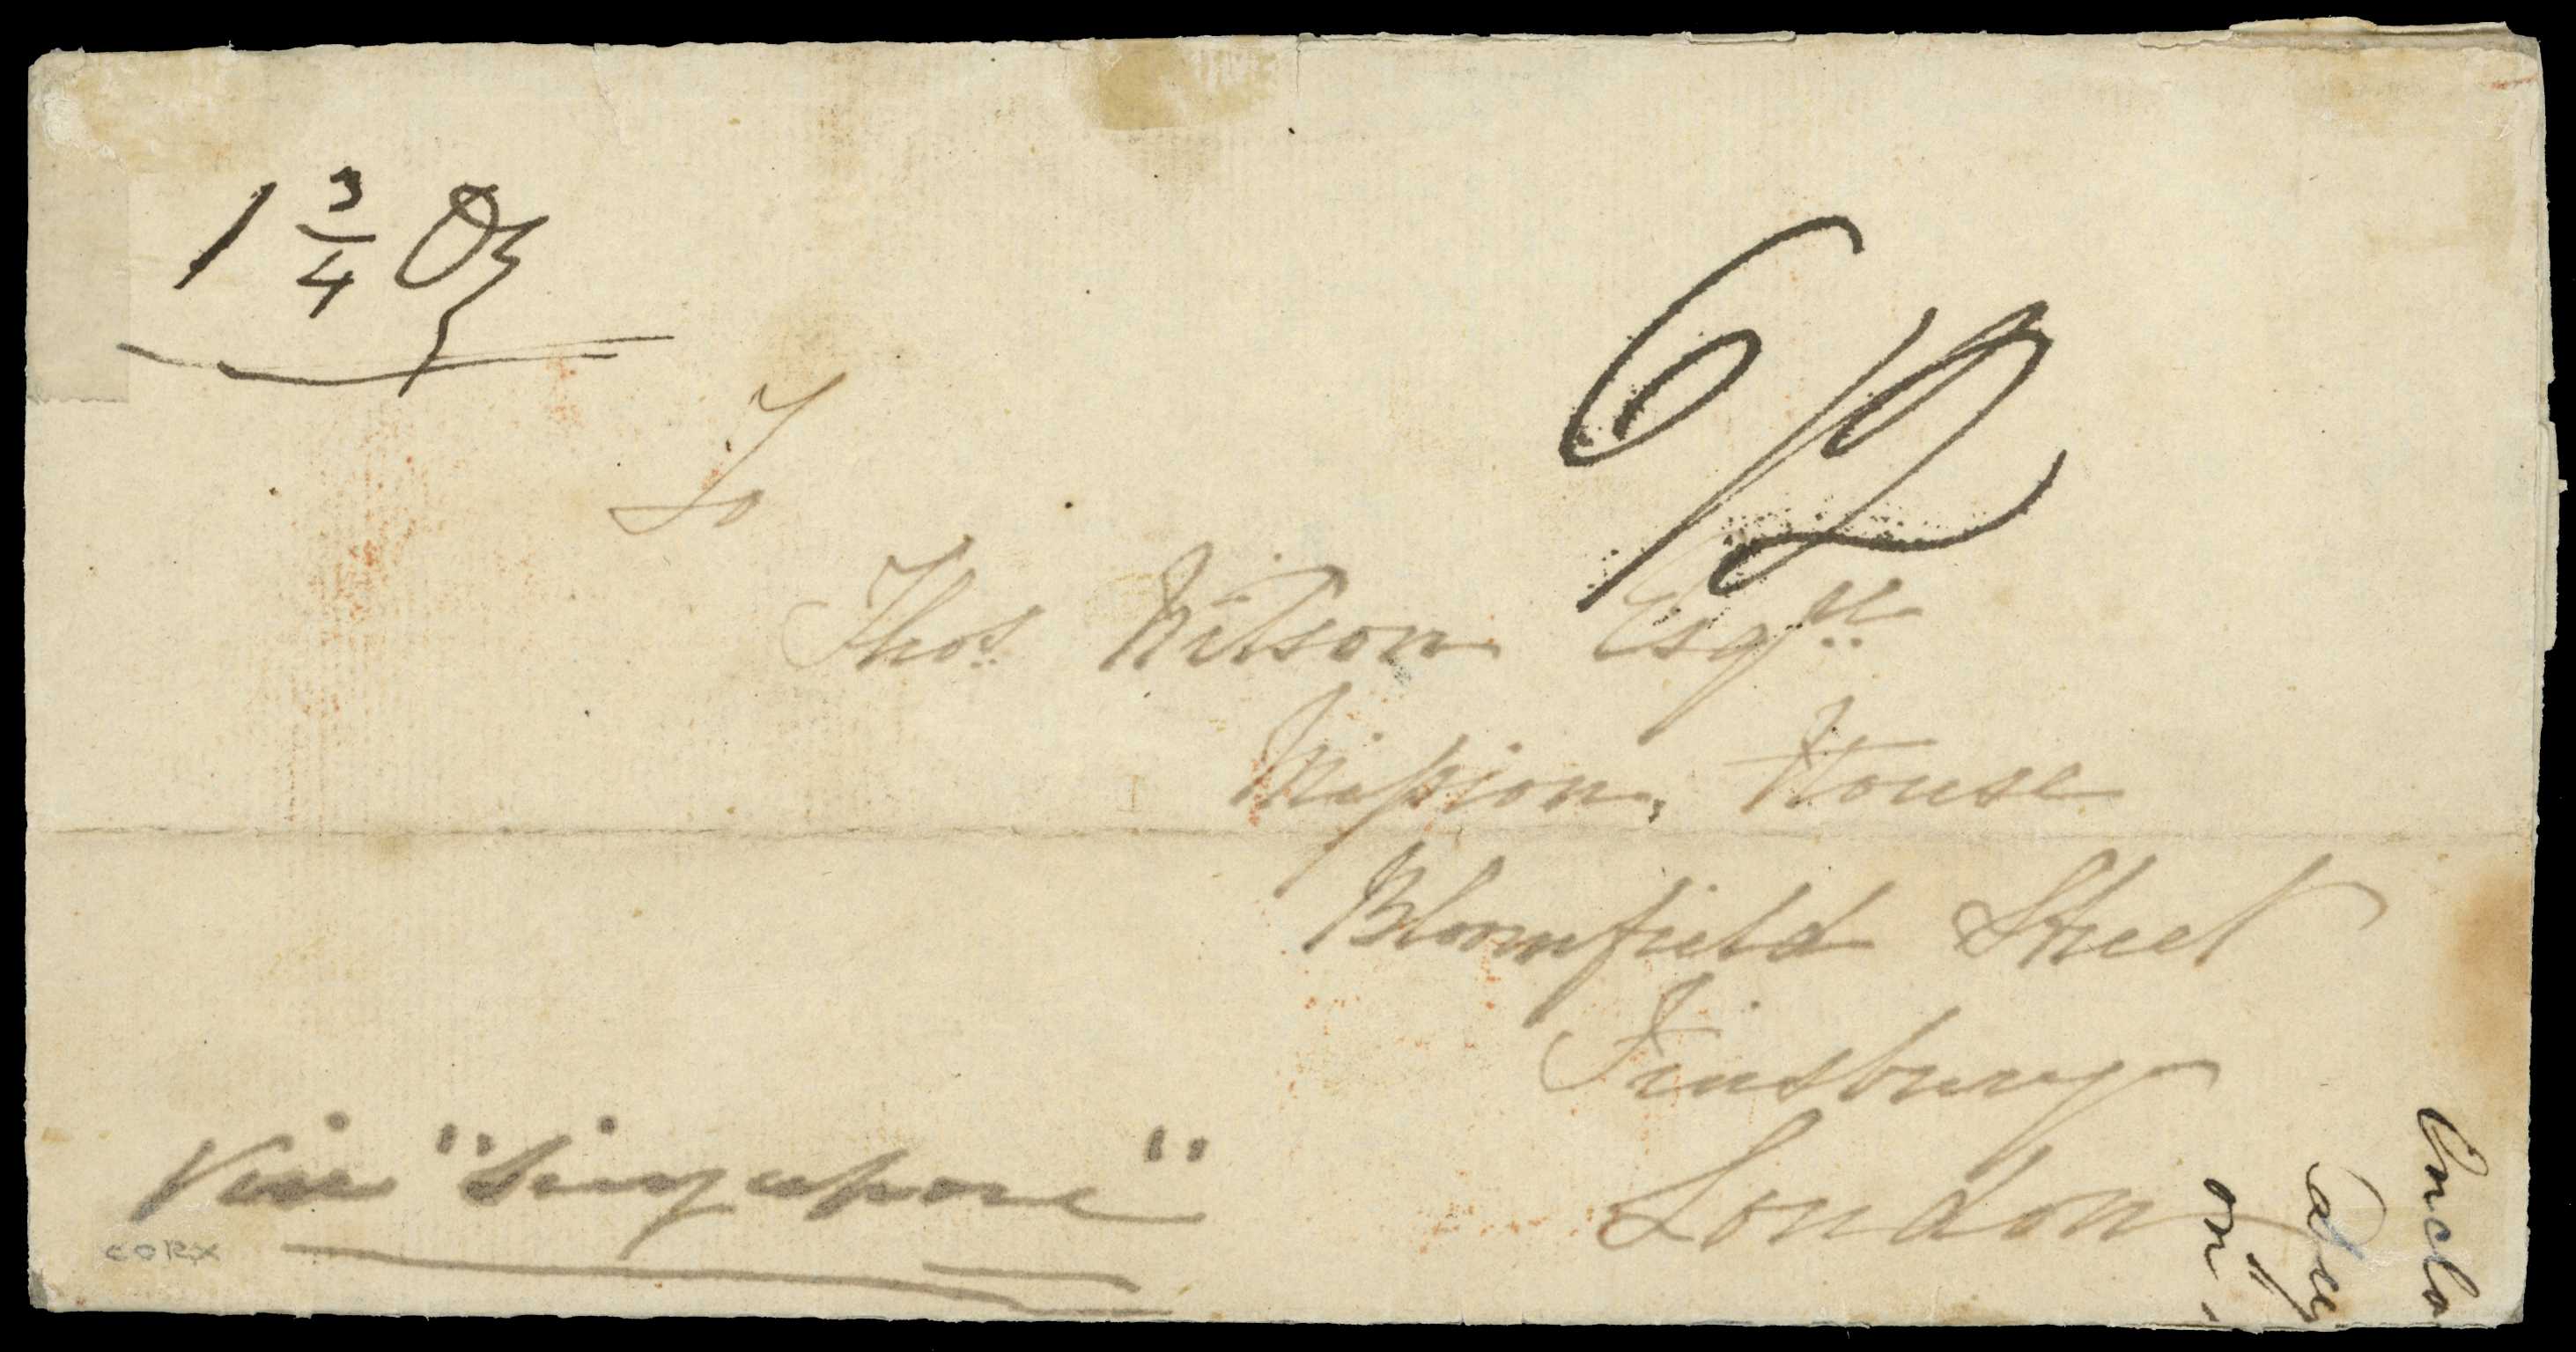 1 3/4 Oz
6/2
To
Thos. Wilson Esqre
Mission House
Blomfield Street
Finsbury
London
Via "Singapore"
CORX
on